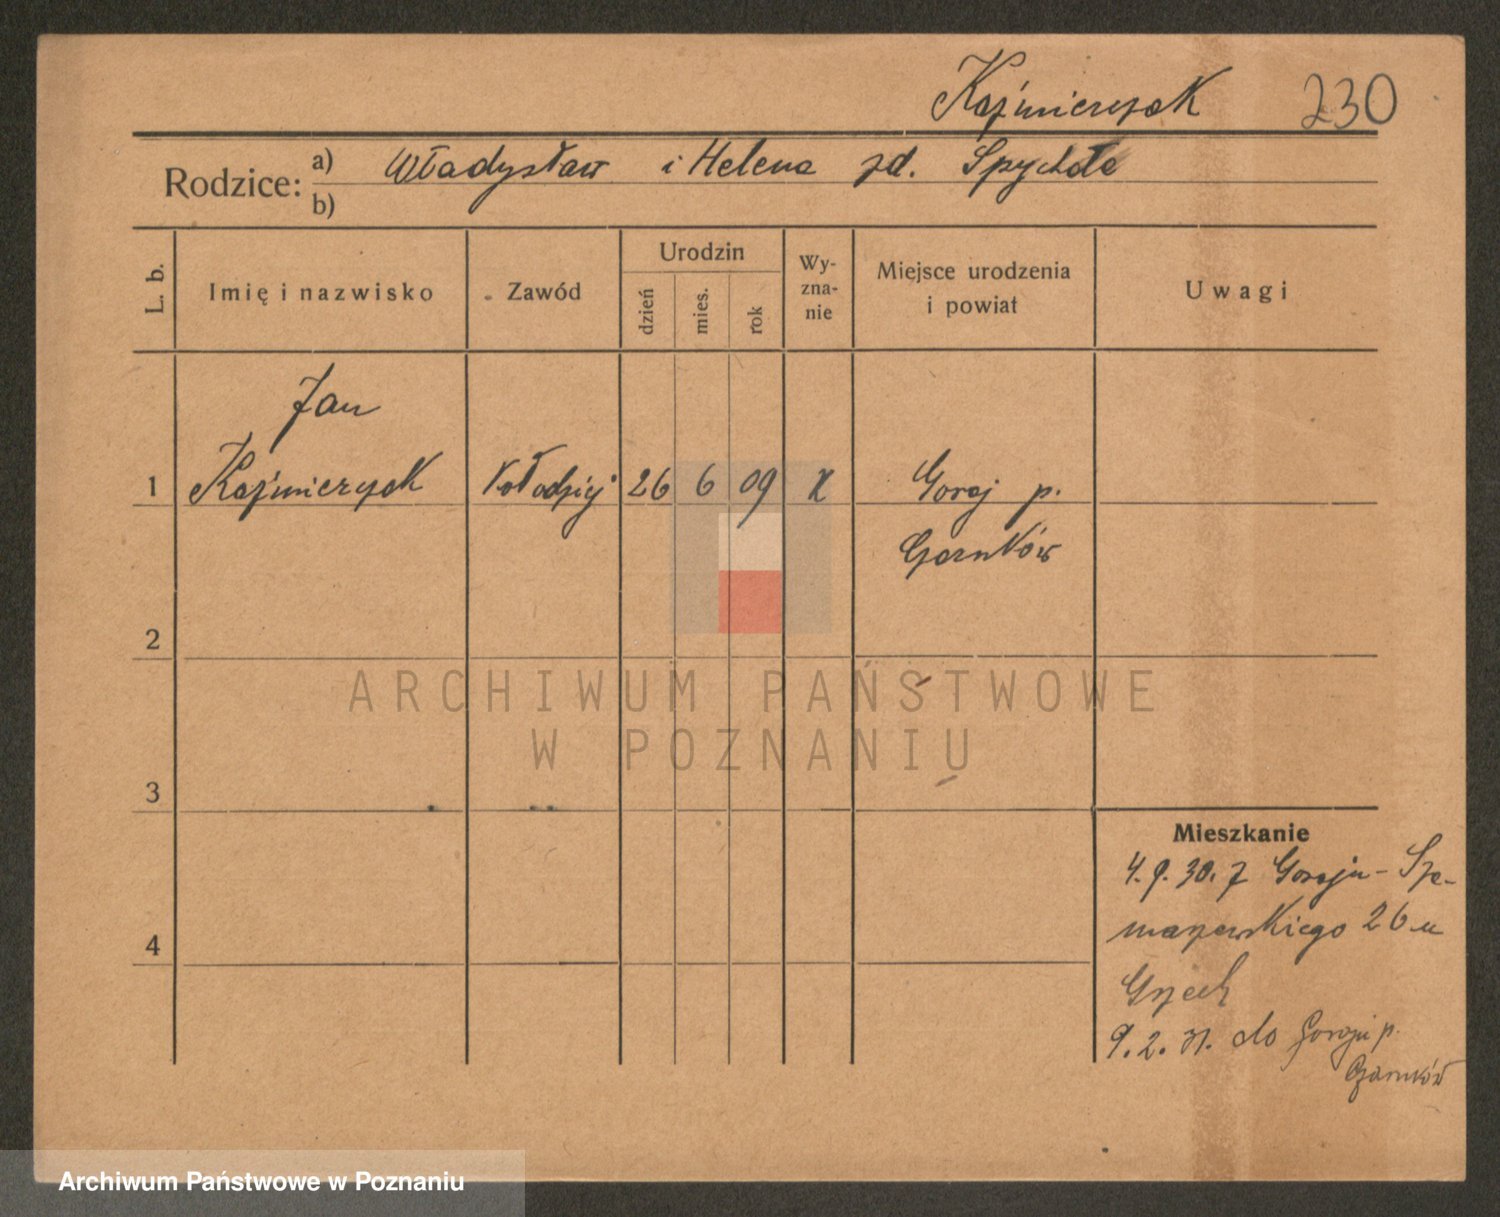 Kaźmierczak 230
Rodzice: a) Władysław i Helena zd. Spychała
b)
L. b. Imię i nazwisko Zawód Urodzin dzień mies. rok Wy-zna-nie Miejsce urodzenia i powiat Uwagi
Jan
1 Kaźmierczak Kołodziej 26 6 09 K Goraj p.
Czarnków
2
ARCHIWUM PAŃSTWOWE
W POZNANIU
3
Mieszkanie
4. 9. 30. z Goraju - Sza-
marzewskiego 26 u
4
9. 2. 31. do Goraju p.
Czarnków
Archiwum Państwowe w Poznaniu